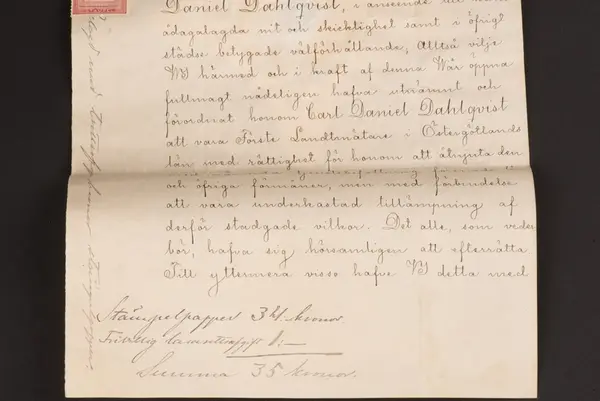 Daniel Dahlqvist, i anseende till
ådagalagda nit och skicklighet samt i öfrigt
städse betygade välförhållande, Alltså vilje
Wj härmed och i kraft af denna Wår öppna
fullmagt nådeligen hafva utnämnt och
förordnat honom Carl Daniel Dahlqvist
att vara Förste Landtmätare i Östergötlands
län med rättighet för honom att åtnjuta den
och öfriga förmåner, men med förbindelse
att vara underkastad tillämpning af
derför stadgade vilkor. Det alle, som veder-
bör, hafva sig hörsamligen att efterrätta
Till yttermera visso hafve Wj detta med
Stämpelpapper 34. kronor.
Frivillig 1:—
Summa 35 kronor.